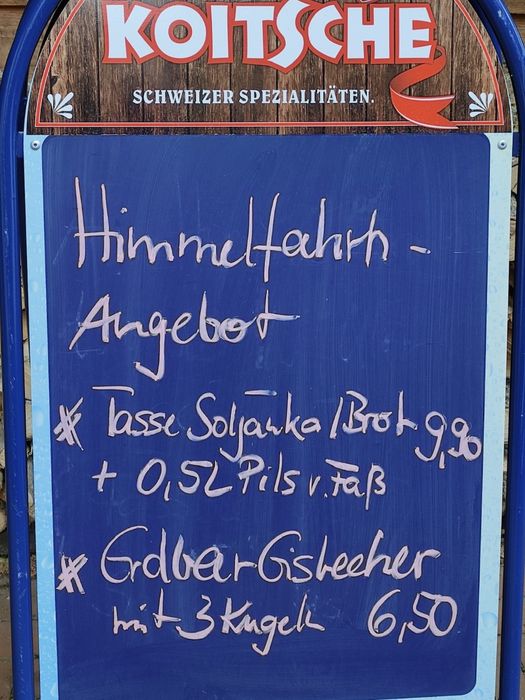 KOITSCHE
SCHWEIZER SPEZIALITÄTEN.
Himmelfahrts-
Angebot
* Tasse Soljanka/Brot 9,90
+ 0,5L Pils v. Faß
* Erdbeer Eisbecher
mit 3 Kugeln 6,50